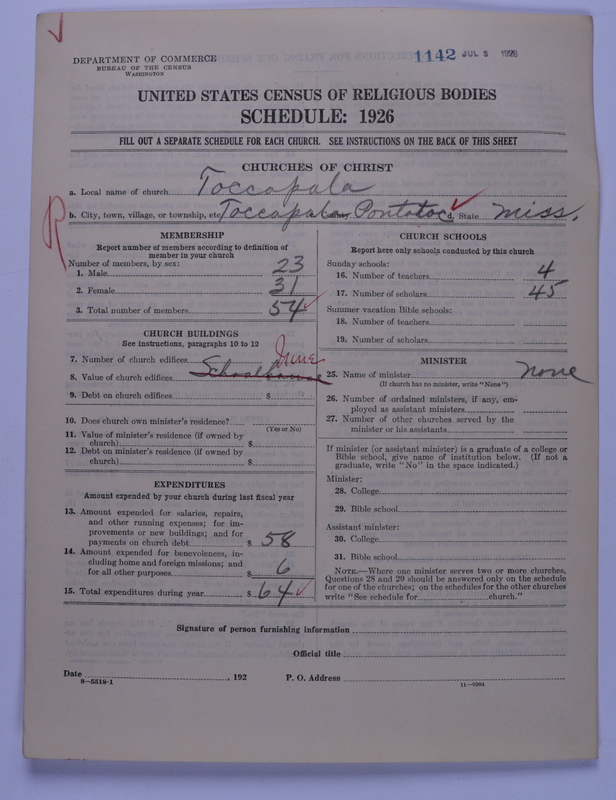 1142 JUL 3 1928
DEPARTMENT OF COMMERCE
BUREAU OF THE CENSUS
WASHINGTON
UNITED STATES CENSUS OF RELIGIOUS BODIES
SCHEDULE: 1926
FILL OUT A SEPARATE SCHEDULE FOR EACH CHURCH. SEE INSTRUCTIONS ON THE BACK OF THIS SHEET
CHURCHES OF CHRIST
a. Local name of church Toccopola
b. City, town, village, or township, etc. Toccopola County Pontotoc State Miss.
R
MEMBERSHIP
Report number of members according to definition of
member in your church
Number of members, by sex:
1. Male 23
2. Female 31
3. Total number of members 54
CHURCH BUILDINGS
See instructions, paragraphs 10 to 12
7. Number of church edifices
8. Value of church edifices Schoolhouse
9. Debt on church edifices $
10. Does church own minister's residence?
(Yes or No)
11. Value of minister's residence (if owned by
church) $
12. Debt on minister's residence (if owned by
church) $
EXPENDITURES
Amount expended by your church during last fiscal year
13. Amount expended for salaries, repairs,
and other running expenses; for im-
provements or new buildings; and for
payments on church debt $ 58
14. Amount expended for benevolences, in-
cluding home and foreign missions; and
for all other purposes $ 6
15. Total expenditures during year $ 64
CHURCH SCHOOLS
Report here only schools conducted by this church
Sunday schools:
16. Number of teachers 4
17. Number of scholars 45
Summer vacation Bible schools:
18. Number of teachers
19. Number of scholars
MINISTER
25. Name of minister none
(If church has no minister, write "None")
26. Number of ordained ministers, if any, em-
ployed as assistant ministers
27. Number of other churches served by the
minister or his assistants
If minister (or assistant minister) is a graduate of a college or
Bible school, give name of institution below. (If not a
graduate, write "No" in the space indicated.)
Minister:
28. College
29. Bible school
Assistant minister:
30. College
31. Bible school
NOTE.—Where one minister serves two or more churches,
Questions 28 and 29 should be answered only on the schedule
for one of the churches; on the schedules for the other churches
write "See schedule for church."
Signature of person furnishing information
Official title
Date , 192 P. O. Address
8—5518-1 11—9204